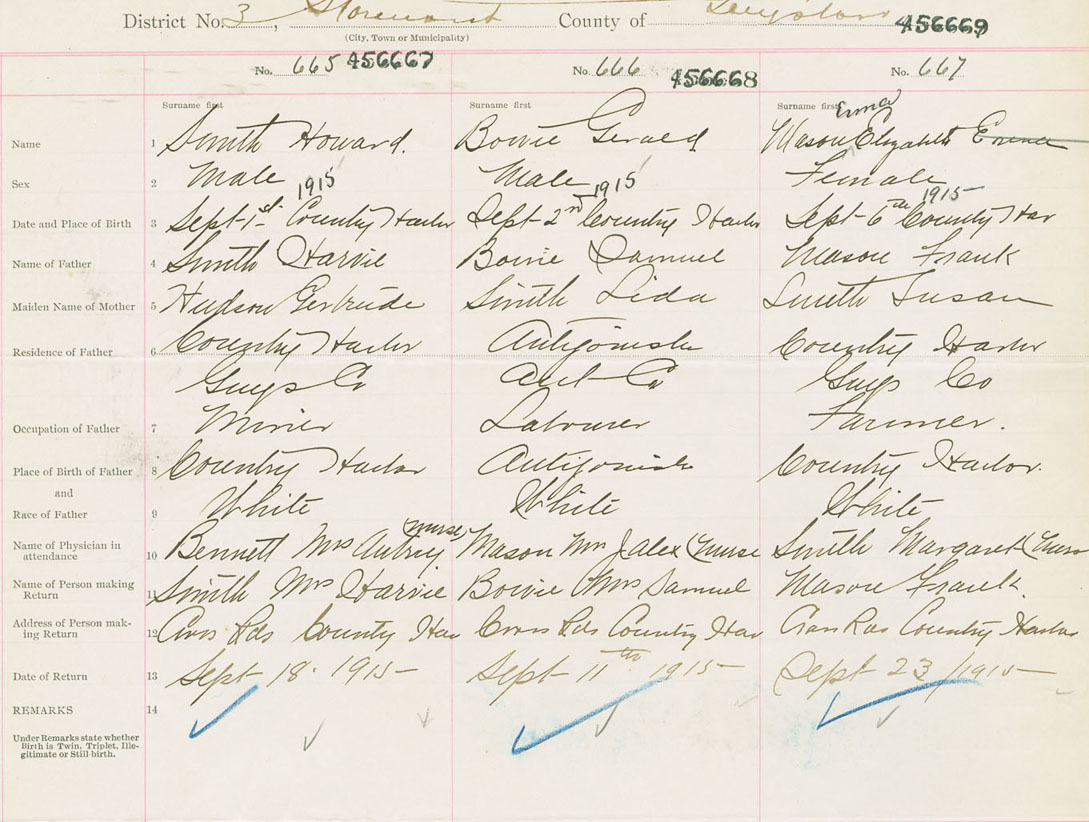 District No. 3, Stormont County of Guysboro 456669
(City, Town or Municipality)
No. 665 456667 No. 666 456668 No. 667
Surname first Surname first Surname first Erma
Name 1 Smith Howard. Bowie Gerald Mason Elizabeth
Sex 2 Male Male Female
1915 1915 1915
Date and Place of Birth 3 Sept 1st Country Harbor Sept 2nd Country Harbor Sept 6th Country Har
Name of Father 4 Smith Harvie Bowie Samuel Mason Frank
Maiden Name of Mother 5 Hudson Gertrude Smith Lida Smith Susan
Residence of Father 6 Country Harbor Antigonish Country Harbor
Guys Co Ant Co Guys Co
Occupation of Father 7 Miner Labourer Farmer.
Place of Birth of Father 8 Country Harbor Antigonish Country Harbor.
and
Race of Father 9 White White White
Name of Physician in attendance 10 Bennett Mrs Aubrey (nurse Mason Mrs J Alex (nurse Smith Margaret (nurs
Name of Person making Return 11 Smith Mrs Harvie Bowie Mrs Samuel Mason Frank.
Address of Person making Return 12 Cross Rds County Har Cross Rds Country Har Cross Rds Country Harbor
Date of Return 13 Sept 18. 1915 Sept 11th 1915 Sept 23 1915
REMARKS 14
Under Remarks state whether
Birth is Twin, Triplet, Ille-
gitimate or Still-birth.